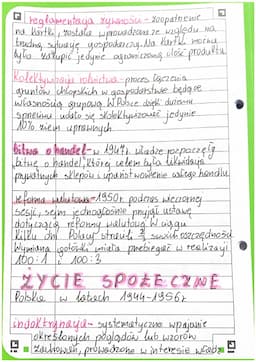 reglamentacja żywności - zaopatrzenie
na kartki, została wprowadzona ze względu na
trudną sytuację gospodarczą. Na kartki można
było zakupić jedynie ograniczoną ilość produktu
Kolektywizacja rolnictwa - proces łączenia
gruntów chłopskich w gospodarstwa będące
własnością grupową. W Polsce dzięki
sprzeciwu udało się skolektywizować jedynie
10% ziem uprawnych.
bitwa o handel - w 1947r. władze rozpoczęły
bitwę o handel, której celem była likwidacja
prywatnych sklepów i upaństwowienie całego handlu
reforma walutowa - 1950r. podczas wieczornej
sesji, sejm jednogłośnie przyjął ustawę
dotyczącą reformy walutowej. W ciągu
kilku dni Polacy stracili 2/3 swoich oszczędności
Wymiana gotówki miała przebiegać w realizacji
100 : 1 i 100 : 3
ŻYCIE SPOŁECZNE
Polska w latach 1944-1956r
indoktrynacja - systematyczne wpajanie
określonych poglądów lub wzorów
zachowań, prowadzone w interesie władzy